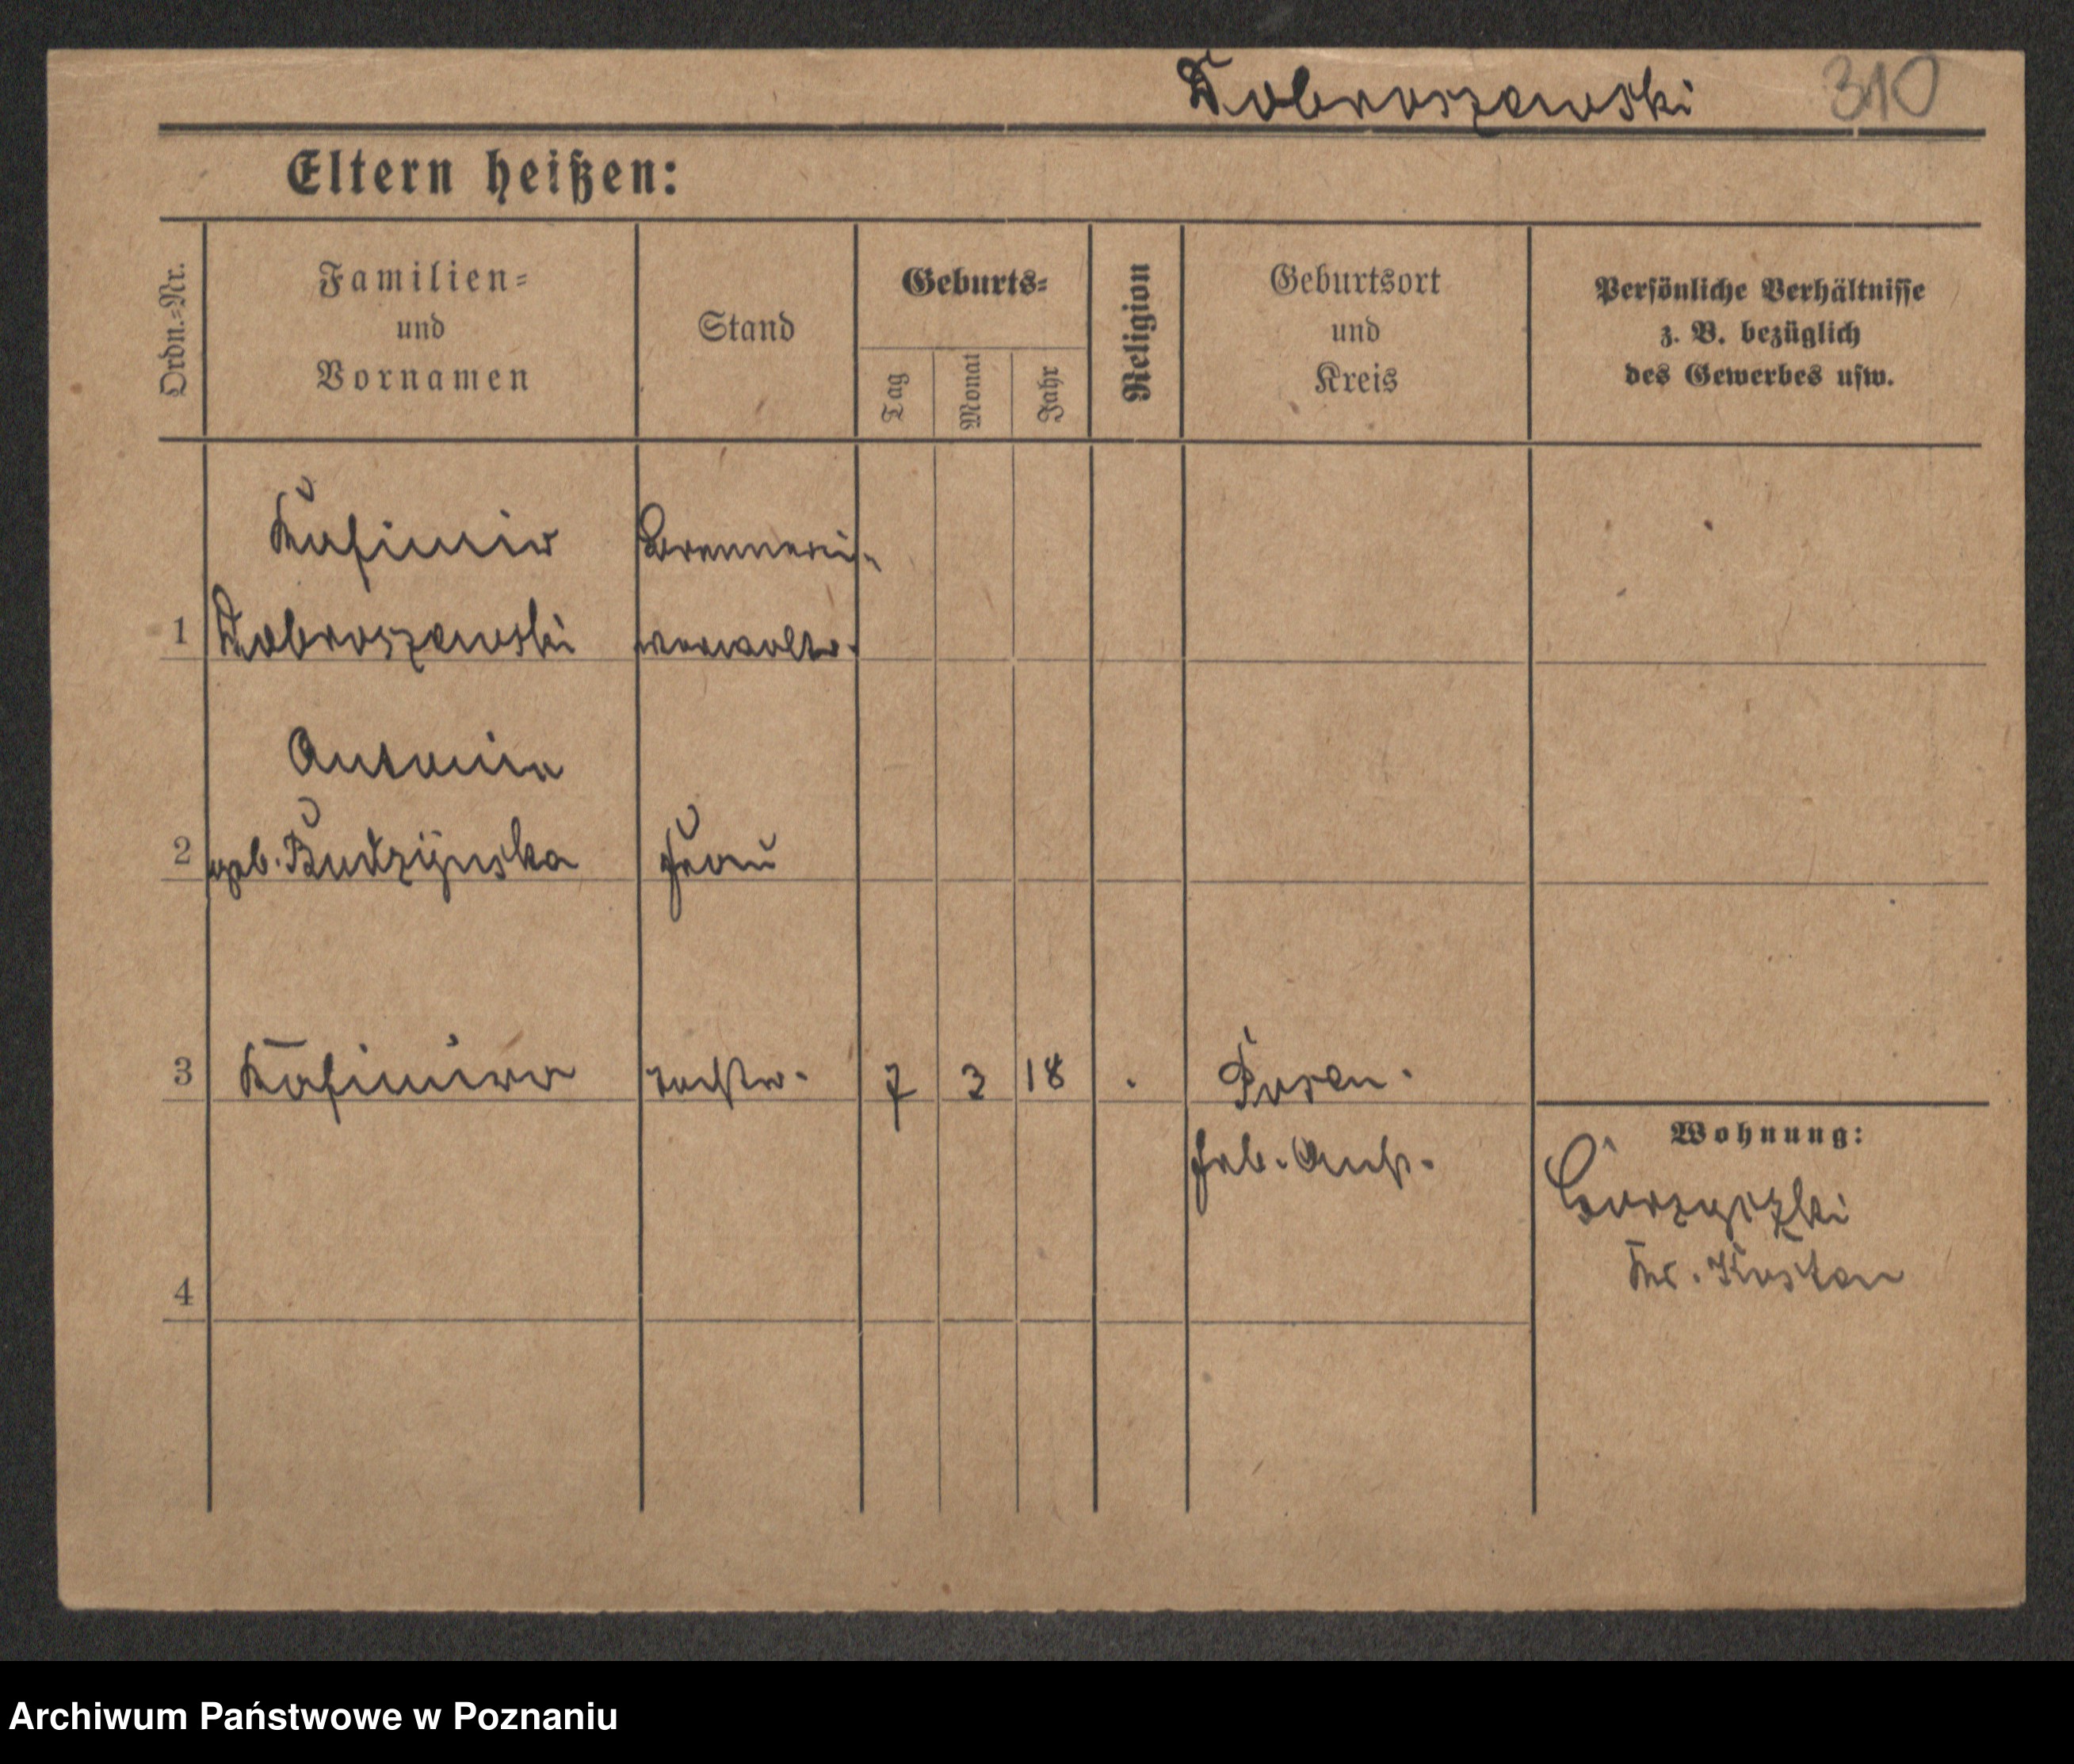 Dobroszewski 310
Eltern heißen:
Ordn.=Nr.
Familien=
und
Vornamen
Stand
Geburts=
Tag
Monat
Jahr
Religion
Geburtsort
und
Kreis
Persönliche Verhältnisse
z. B. bezüglich
des Gewerbes usw.
Kasimir Brennerei-
1 Dobroszewski verwalter.
Antonia
2 geb. Budzynska Frau
3 Kasimira tochter. 7 3 18 . Posen.
Wohnung:
Geb. Anst.
Gorzyczki
Kr. Kosten
4
Archiwum Państwowe w Poznaniu